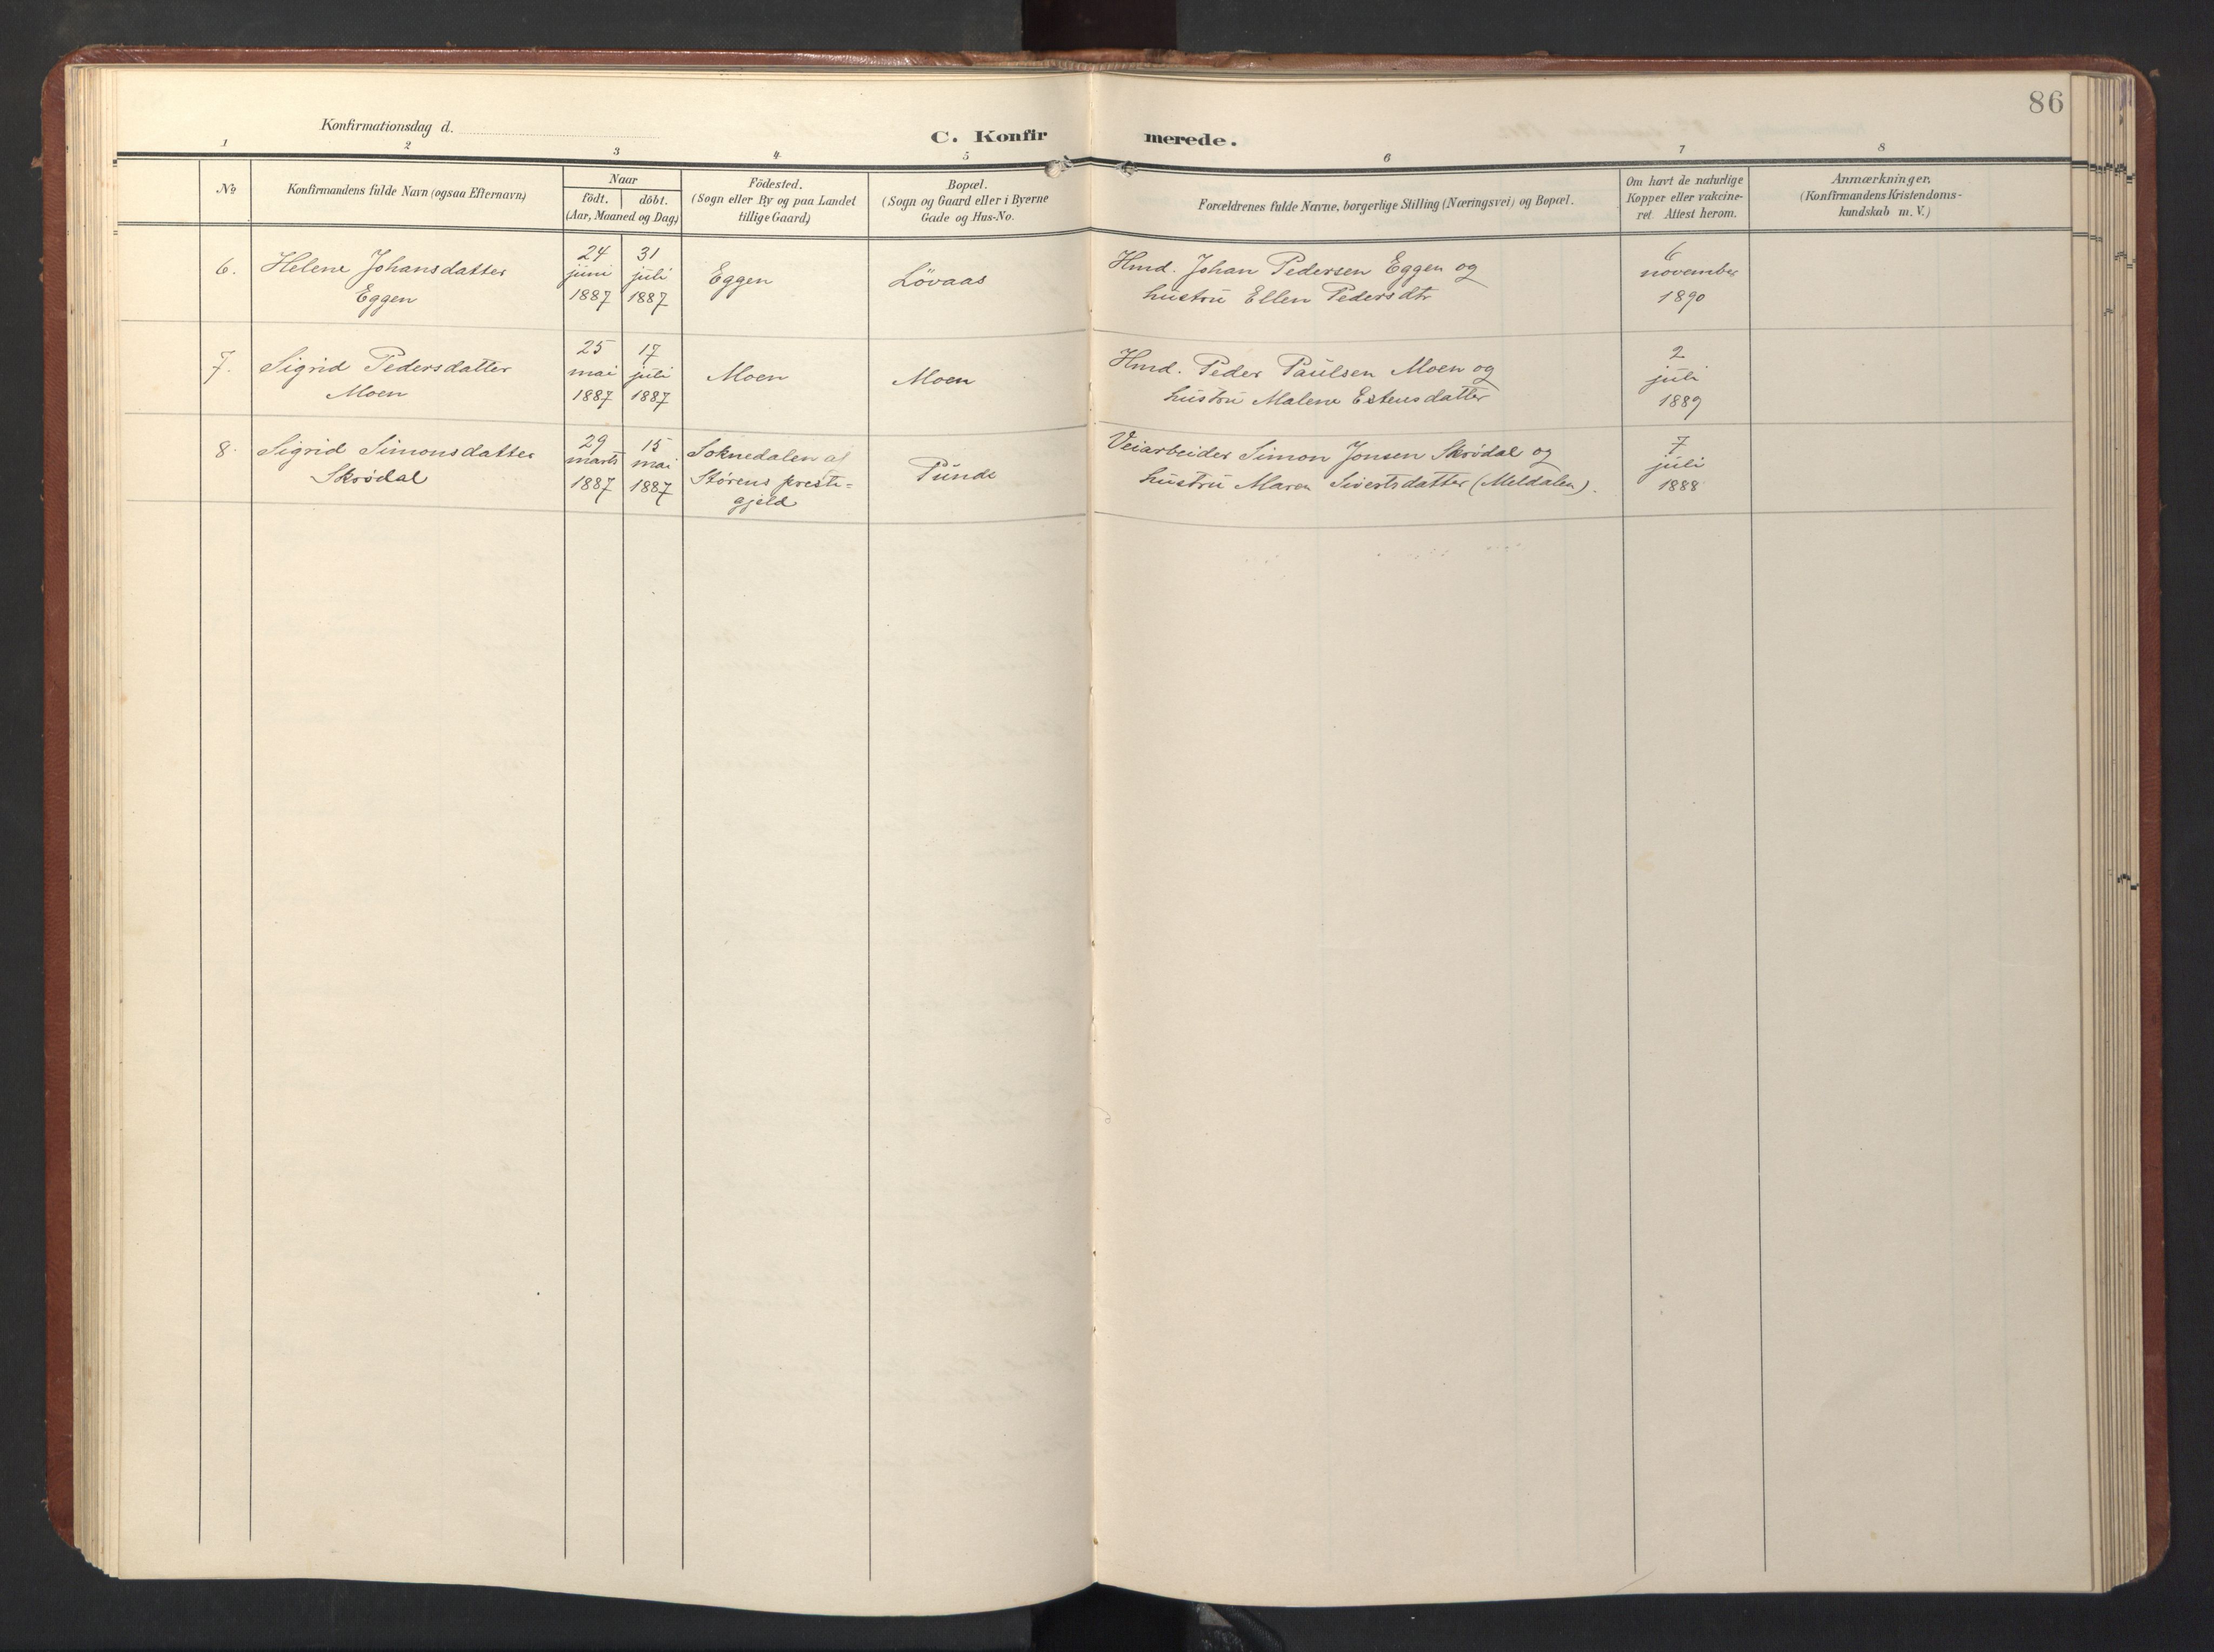 86
Konfirmationsdag d.
C. Konfirmerede.
1 2 3 4 5 6 7 8
No
Konfirmandens fulde Navn (ogsaa Efternavn)
Naar
födt. döbt.
(Aar, Maaned og Dag)
Födested.
(Sogn eller By og paa Landet
tillige Gaard)
Bopæl.
(Sogn og Gaard eller i Byerne
Gade og Hus-No.
Forældrenes fulde Navne, borgerlige Stilling (Næringsvei) og Bopæl.
Om havt de naturlige
Kopper eller vakcine-
ret Attest herom.
Anmærkninger.
(Konfirmandens Kristendoms-
kundskab m. V.)
6.
Helene Johansdatter
Eggen
24
juni
1887
31
juli
1887
Eggen
Lövaas
Hmd. Johan Pedersen Eggen og
hustru Ellen Pedersdtr
6
november
1890
7.
Sigrid Pedersdatter
Moen
25
mai
1887
17
juli
1887
Moen
Moen
Hmd. Peder Paulsen Moen og
hustru Malene Estensdatter
2
juli
1889
8.
Sigrid Simonsdatter
Skrødal
29
marts
1887
15
mai
1887
Soknedalen af
Störens preste-
gjeld
Punde
Veiarbeider Simon Jonsen Skrødal og
hustru Maren Sivertsdatter (Meldalen).
7
juli
1888